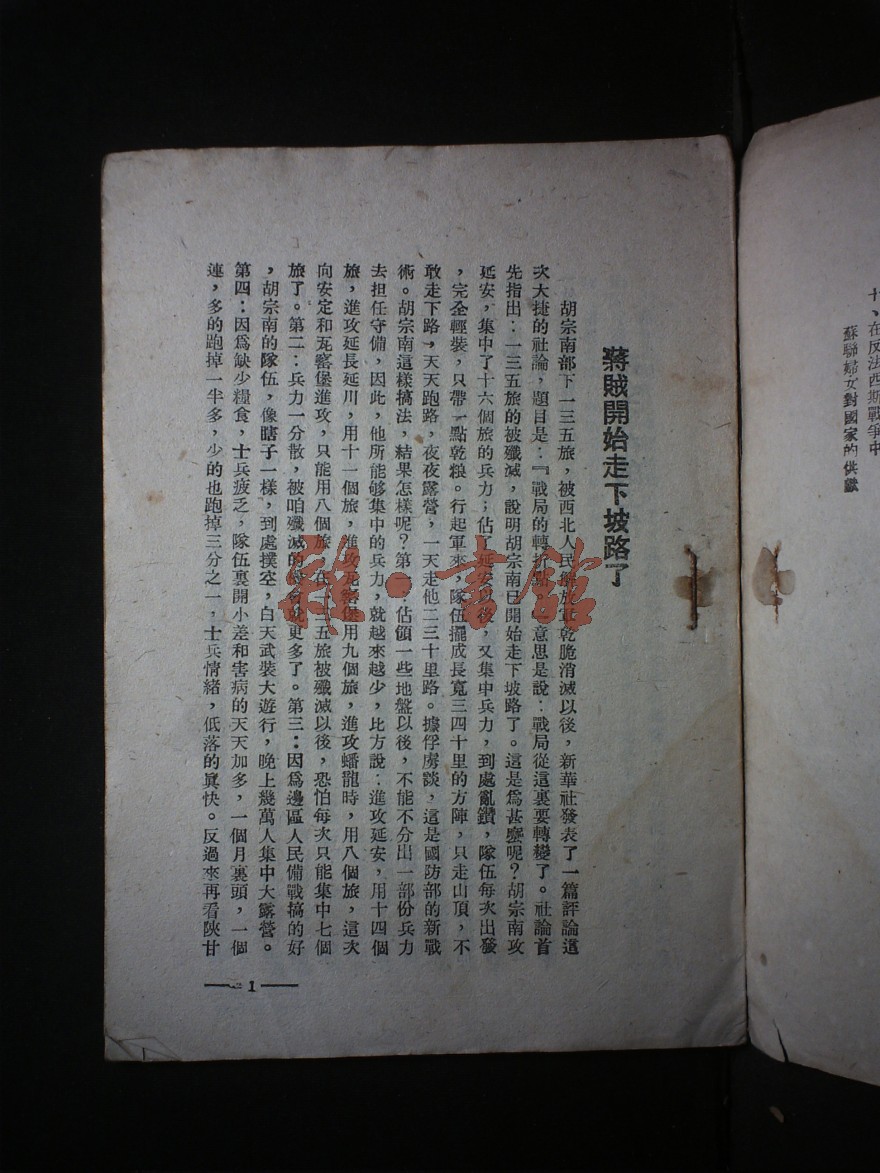 十、在反法西斯戰爭中
蘇聯婦女對國家的供獻
蔣賊開始走下坡路了
胡宗南部下一三五旅，被西北人民解放軍乾脆消滅以後，新華社發表了一篇評論這
次大捷的社論，題目是：『戰局的轉折 意思是說：戰局從這裏要轉變了。社論首
先指出：一三五旅的被殲滅，說明胡宗南已開始走下坡路了。這是爲甚麽呢？胡宗南攻
延安，集中了十六個旅的兵力；佔了延安以後，又集中兵力，到處亂鑽，隊伍每次出發
，完全輕裝，只帶一點乾粮。行起軍來，隊伍擺成長寬三四十里的方陣，只走山頂，不
敢走下路，天天跑路，夜夜露營，一天走他二三十里路。據俘虜談，這是國防部的新戰
術。胡宗南這樣搞法，結果怎樣呢？第一：佔領一些地盤以後，不能不分出一部份兵力
去担任守備，因此，他所能够集中的兵力，就越來越少，比方說：進攻延安，用十四個
旅，進攻延長延川，用十一個旅，進攻瓦窑堡用九個旅，進攻蟠龍時，用八個旅，這次
向安定和瓦窑堡進攻，只能用八個旅，在一三五旅被殲滅以後，恐怕每次只能集中七個
旅了。第二：兵力一分散，被咱殲滅的 就更多了。第三：因爲邊區人民備戰搞的好
，胡宗南的隊伍，像瞎子一樣，到處撲空，白天武裝大遊行，晚上幾萬人集中大露營。
第四：因爲缺少糧食，士兵疲乏，隊伍裏開小差和害病的天天加多，一個月裏頭，一個
連，多的跑掉一半多，少的也跑掉三分之一，士兵情緒，低落的眞快。反過來再看陝甘
1
雜·書館